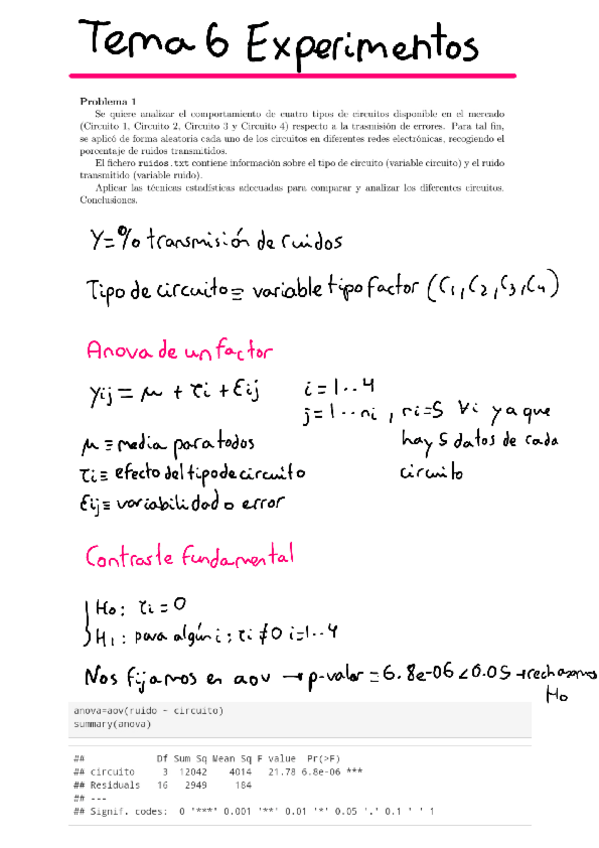 Tema 6 Experimentos
Problema 1
Se quiere analizar el comportamiento de cuatro tipos de circuitos disponible en el mercado
(Circuito 1, Circuito 2, Circuito 3 y Circuito 4) respecto a la trasmisión de errores. Para tal fin,
se aplicó de forma aleatoria cada uno de los circuitos en diferentes redes electrónicas, recogiendo el
porcentaje de ruidos transmitidos.
El fichero ruidos.txt contiene información sobre el tipo de circuito (variable circuito) y el ruido
transmitido (variable ruido).
Aplicar las técnicas estadísticas adecuadas para comparar y analizar los diferentes circuitos.
Conclusiones.
Y=% transmisión de ruidos
Tipo de circuito ≡ variable tipo factor (C1, C2, C3, C4)
Anova de un factor
yij = μ + τi + εij i = 1..4
j = 1..ni, ni=5 ∀i ya que
μ ≡ media para todos hay 5 datos de cada
τi ≡ efecto del tipo de circuito circuito
εij ≡ variabilidad o error
Contraste fundamental
H0: τi = 0
H1: para algún i; τi ≠ 0 i=1..4
Nos fijamos en aov → p-valor = 6.8e-06 < 0.05 → rechazamos
H0
anova=aov(ruido ~ circuito)
summary(anova)
## Df Sum Sq Mean Sq F value Pr(>F)
## circuito 3 12042 4014 21.78 6.8e-06 ***
## Residuals 16 2949 184
## ---
## Signif. codes: 0 '***' 0.001 '**' 0.01 '*' 0.05 '.' 0.1 ' ' 1